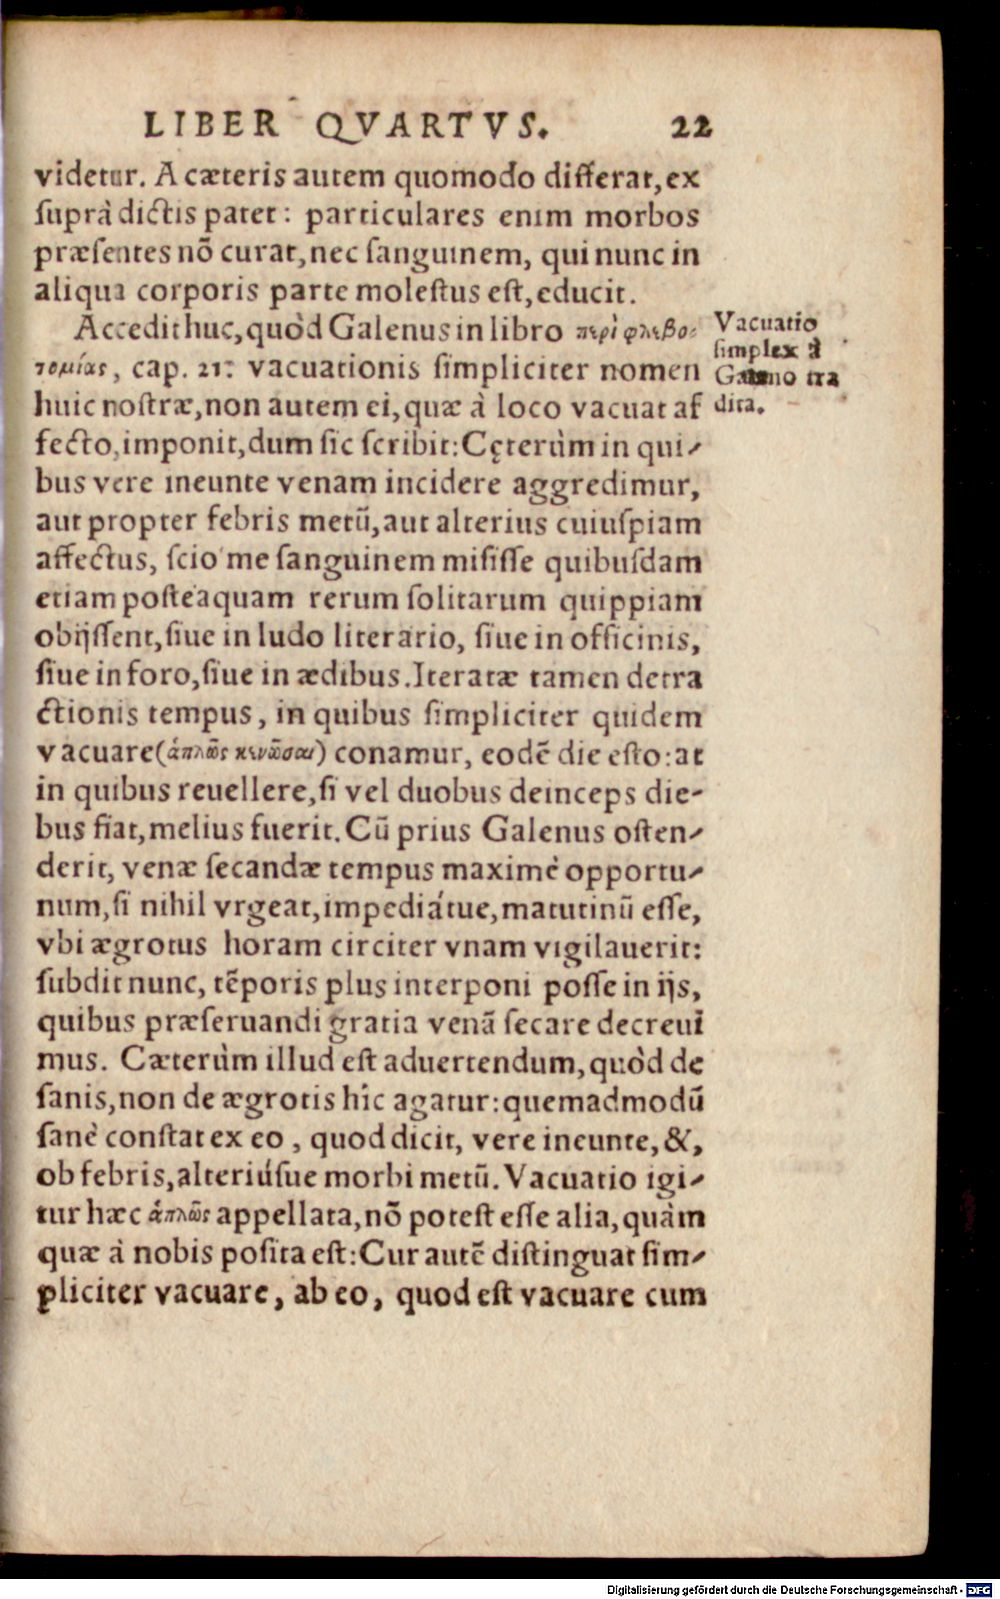 LIBER QVARTVS. 22
videtur. A cæteris autem quomodo differat, ex
ſuprà dictis patet: particulares enim morbos
præſentes nõ curat, nec ſanguinem, qui nunc in
aliqua corporis parte moleſtus eſt, educit.
Accedit huc, quòd Galenus in libro περὶ φλεβο-
τομίας, cap. 21: vacuationis ſimpliciter nomen
huic noſtræ, non autem ei, quæ à loco vacuat af
fecto, imponit, dum ſic ſcribit: Cęterùm in qui-
bus vere ineunte venam incidere aggredimur,
aut propter febris metũ, aut alterius cuiuſpiam
affectus, ſcio me ſanguinem miſiſſe quibuſdam
etiam poſteaquam rerum ſolitarum quippiam
obijſſent, ſiue in ludo literario, ſiue in officinis,
ſiue in foro, ſiue in ædibus. Iteratæ tamen detra
ctionis tempus, in quibus ſimpliciter quidem
vacuare (ἁπλῶς κενῶσαι) conamur, eodẽ die eſto: at
in quibus reuellere, ſi vel duobus deinceps die-
bus fiat, melius fuerit. Cũ prius Galenus oſten-
derit, venæ ſecandæ tempus maximè opportu-
num, ſi nihil vrgeat, impediátue, matutinũ eſſe,
vbi ægrotus horam circiter vnam vigilauerit:
ſubdit nunc, tẽporis plus interponi poſſe in ijs,
quibus præſeruandi gratia venã ſecare decreui
mus. Cæterùm illud eſt aduertendum, quòd de
ſanis, non de ægrotis hîc agatur: quemadmodũ
ſanè conſtat ex eo, quod dicit, vere ineunte, &,
ob febris, alteriúſue morbi metũ. Vacuatio igi-
tur hæc ἁπλῶς appellata, nõ poteſt eſſe alia, quàm
quæ à nobis poſita eſt: Cur autẽ diſtinguat ſim-
pliciter vacuare, ab eo, quod eſt vacuare cum
Vacuatio
ſimplex à
Galeno tra
dita.
Digitalisierung gefördert durch die Deutsche Forschungsgemeinschaft - DFG